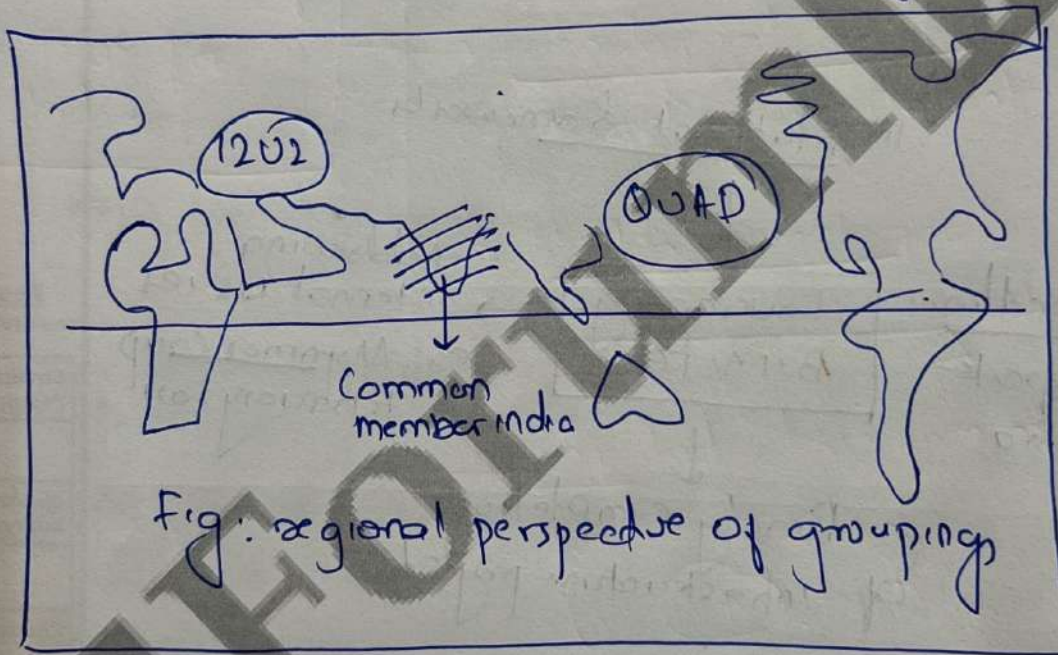 I2U2
QUAD
Common
member india
Fig: regional perspective of groupings
Forum